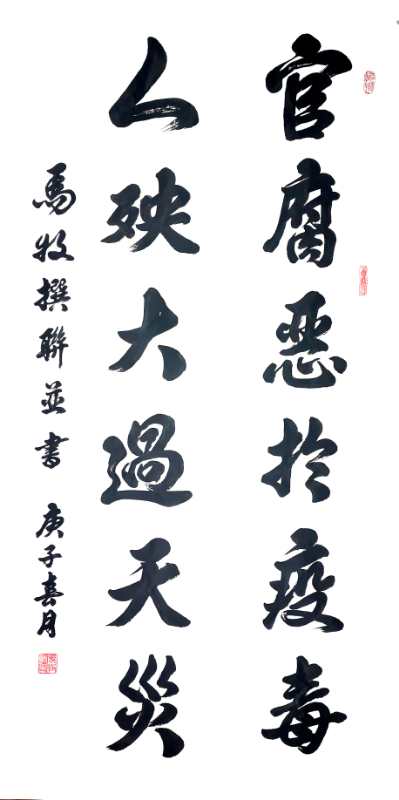 官腐惡於疫毒
人殃大過天災
馬牧撰聯並書 庚子春月